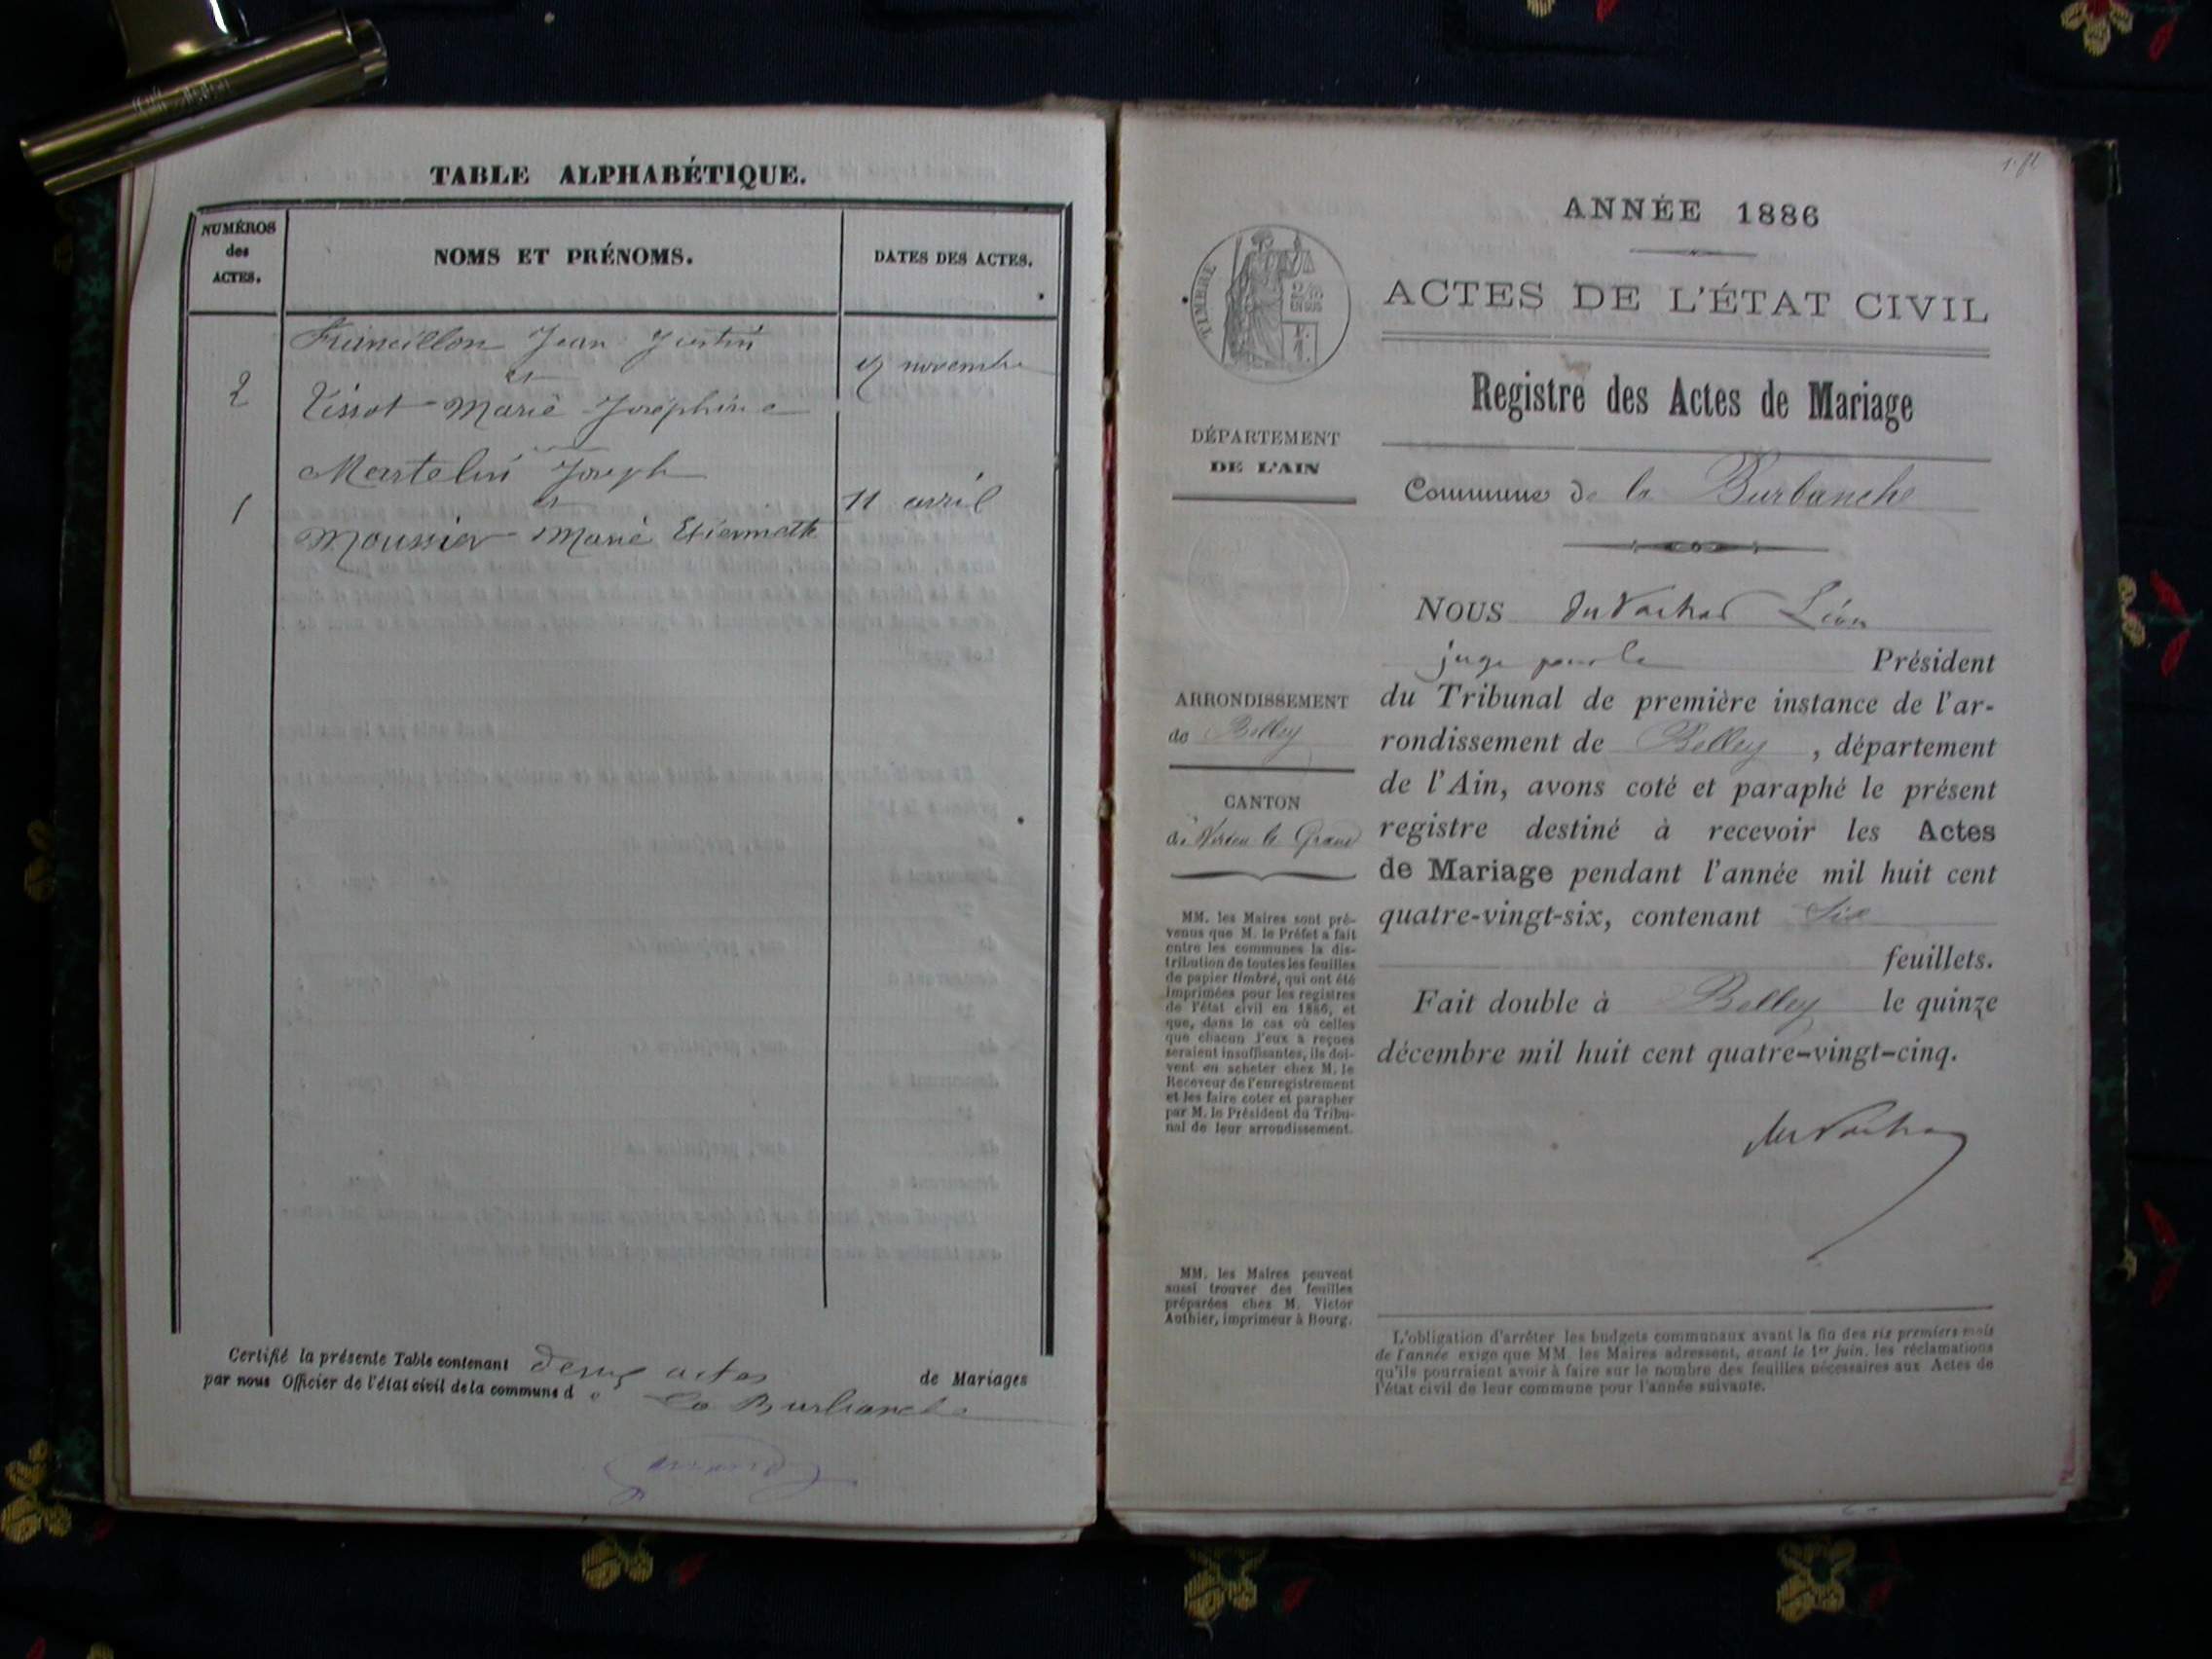 TABLE ALPHABÉTIQUE.
NUMÉROS
des
ACTES.
NOMS ET PRÉNOMS.
DATES DES ACTES.
Francillon Jean Justin
et
novembre
2
Tissot Marie Joséphine
Martelin Joseph
et
11 avril
1
Moussier Marie Etiennette
Certifié la présente Table contenant deux actes de Mariages
par nous Officier de l'état civil de la commune d e La Burbanche
ANNÉE 1886
TIMBRE
ACTES DE L'ÉTAT CIVIL
Registre des Actes de Mariage
DÉPARTEMENT
DE L'AIN
Commune de la Burbanche
NOUS Léon
juge pour le Président
ARRONDISSEMENT
de Belley
CANTON
de Virieu le Grand
du Tribunal de première instance de l'ar-
rondissement de Belley, département
de l'Ain, avons coté et paraphé le présent
registre destiné à recevoir les Actes
de Mariage pendant l'année mil huit cent
quatre-vingt-six, contenant Six
feuillets.
Fait double à Belley le quinze
décembre mil huit cent quatre-vingt-cinq.
MM. les Maires sont pré-
venus que M. le Préfet a fait
entre les communes la dis-
tribution de toutes les feuilles
de papier timbré, qui ont été
imprimées pour les registres
de l'état civil en 1886, et
que, dans le cas où celles
que chacun d'eux a reçues
seraient insuffisantes, ils doi-
vent en acheter chez M. le
Receveur de l'enregistrement
et les faire coter et parapher
par M. le Président du Tribu-
nal de leur arrondissement.
MM. les Maires peuvent
aussi trouver des feuilles
préparées chez M. Victor
Authier, imprimeur à Bourg.
L'obligation d'arrêter les budgets communaux avant la fin des six premiers mois
de l'année exige que MM. les Maires adressent, avant le 1er juin, les réclamations
qu'ils pourraient avoir à faire sur le nombre des feuilles nécessaires aux Actes de
l'état civil de leur commune pour l'année suivante.